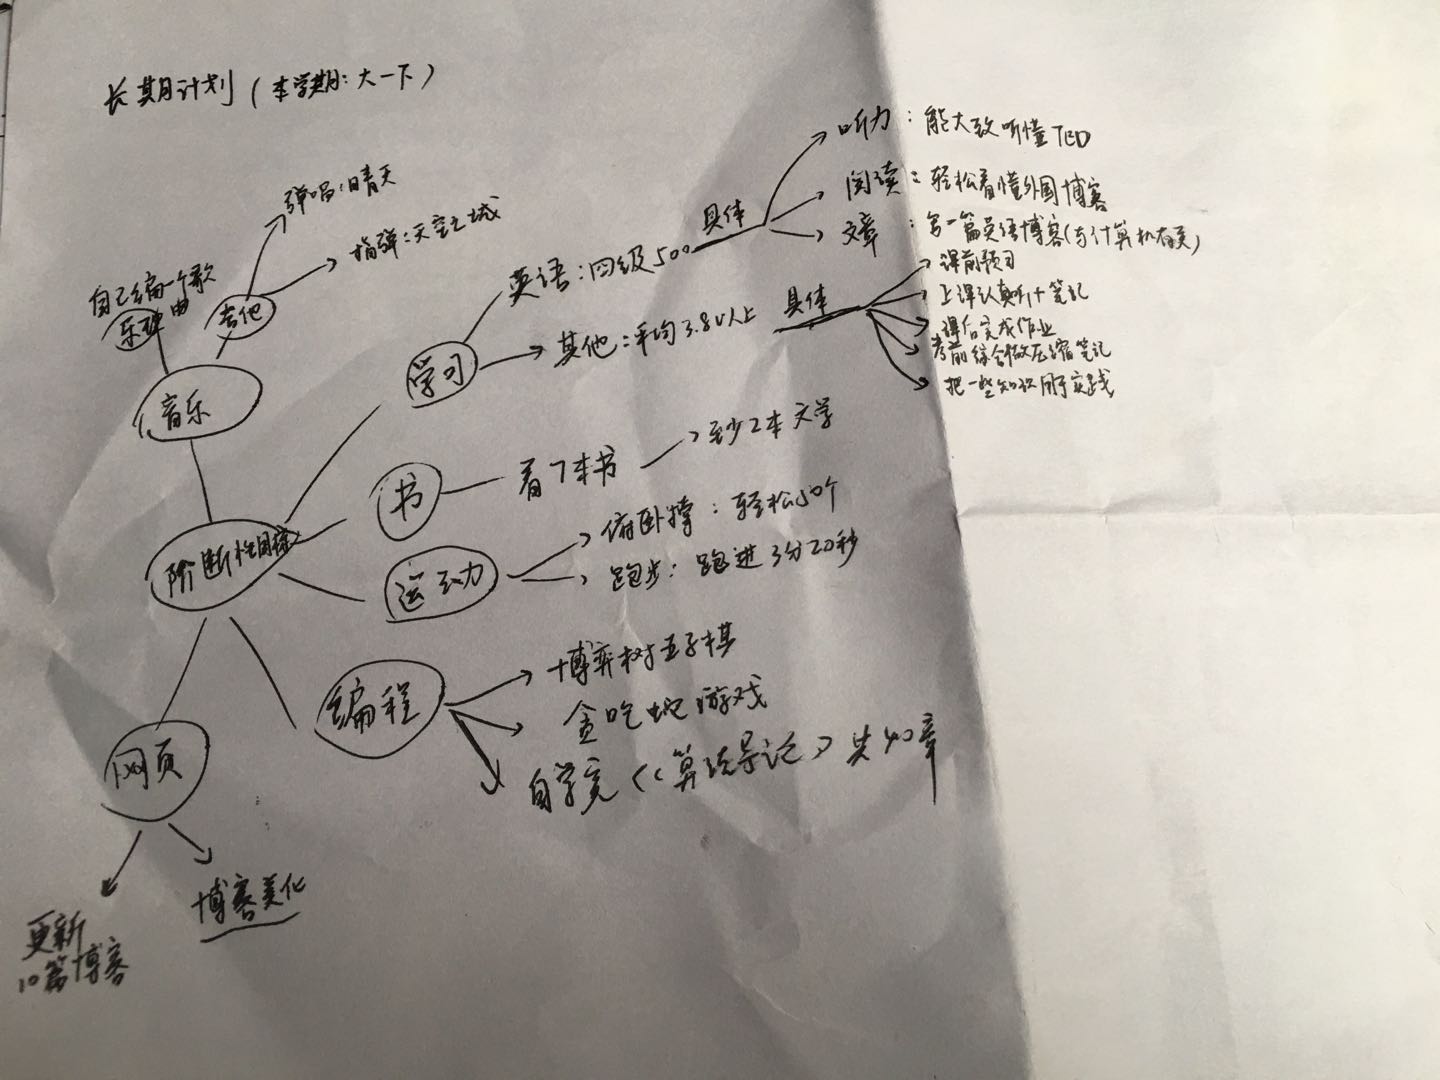 长期计划(本学期:大一下)
弹唱:晴天
指弹:天空之城
自己编一个歌曲
乐理
吉他
音乐
学习
英语:四级500
具体
听力:能大致听懂TED
阅读:轻松看懂外国博客
文章:写一篇英语博客(与计算机有关)
其他:平均3.8以上
具体
课前预习
上课认真听+笔记
课后完成作业
考前综合做压缩笔记
把一些知识用于实践
书
看7本书
至少2本文学
阶断性目标
运动
俯卧撑:轻松50个
跑步:跑进3分20秒
编程
博弈树五子棋
贪吃蛇游戏
自学完《算法导论》共40章
网页
博客美化
更新
10篇博客